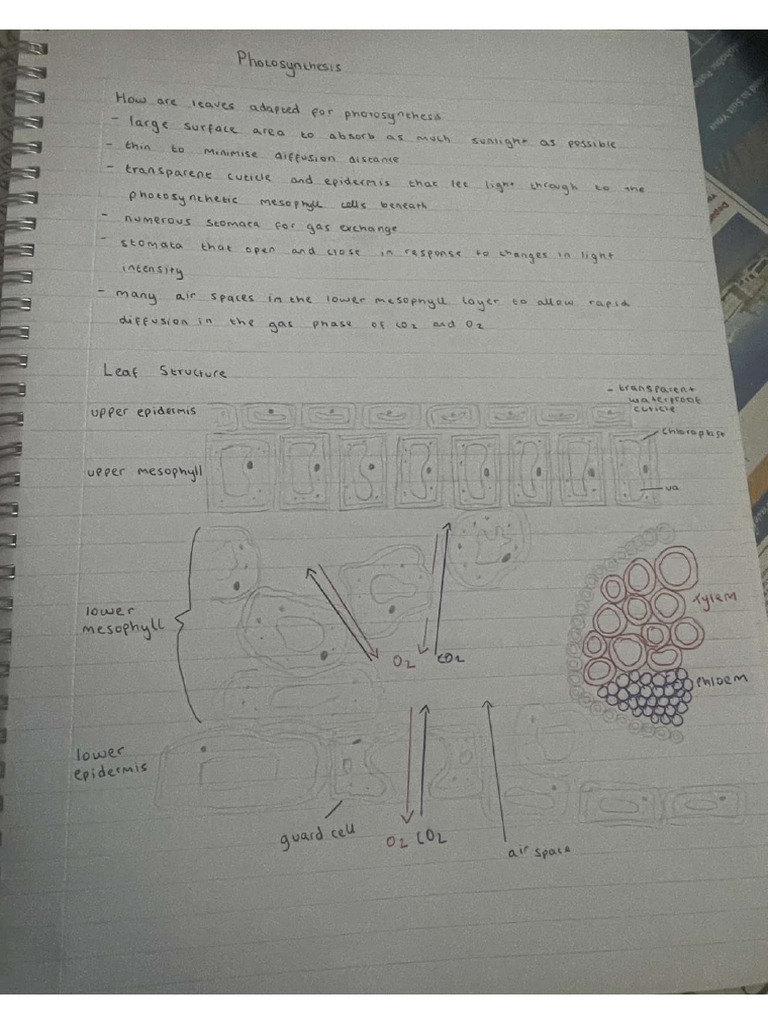 Photosynthesis
How are leaves adapted for photosynthesis
- large surface area to absorb as much sunlight as possible
- thin to minimise diffusion distance
- transparent cuticle and epidermis that let light through to the
photosynthetic mesophyll cells beneath
- numerous stomata for gas exchange
- stomata that open and close in response to changes in light
intensity
- many air spaces in the lower mesophyll layer to allow rapid
diffusion in the gas phase of CO2 and O2
Leaf Structure
- transparent
waterproof
cuticle
upper epidermis
chloroplast
upper mesophyll
va
lower
mesophyll
xylem
O2 CO2
phloem
lower
epidermis
guard cell
O2 CO2
air space